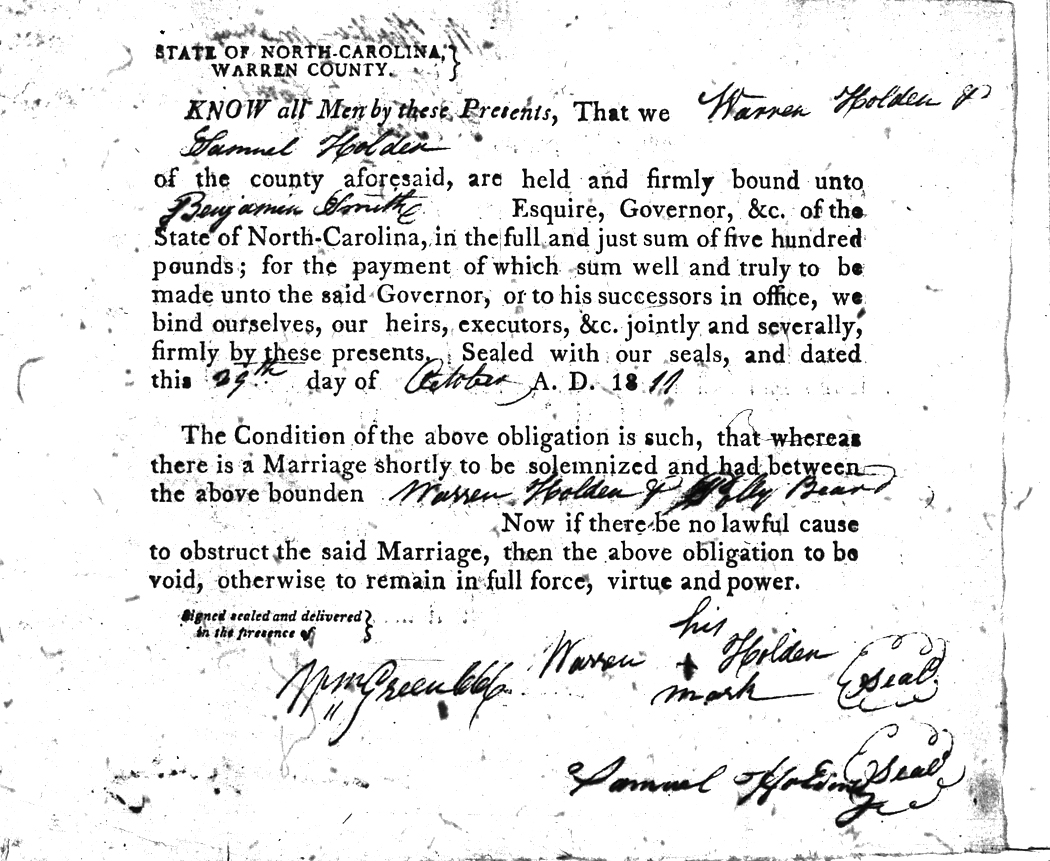 STATE OF NORTH-CAROLINA,}
WARREN COUNTY.
KNOW all Men by these Presents, That we Warren Holden &
Samuel Holden
of the county aforesaid, are held and firmly bound unto
Benjamin Smith Esquire, Governor, &c. of the
State of North-Carolina, in the full and just sum of five hundred
pounds; for the payment of which sum well and truly to be
made unto the said Governor, or to his successors in office, we
bind ourselves, our heirs, executors, &c. jointly and severally,
firmly by these presents. Sealed with our seals, and dated
this 29th day of October A. D. 1811
The Condition of the above obligation is such, that whereas
there is a Marriage shortly to be solemnized and had between
the above bounden Warren Holden & Beard
Now if there be no lawful cause
to obstruct the said Marriage, then the above obligation to be
void, otherwise to remain in full force, virtue and power.
Signed sealed and delivered }
in the presence of
his
Warren + Holden (Seal)
mark
Wm Green CCC
Samuel Holding (Seal)